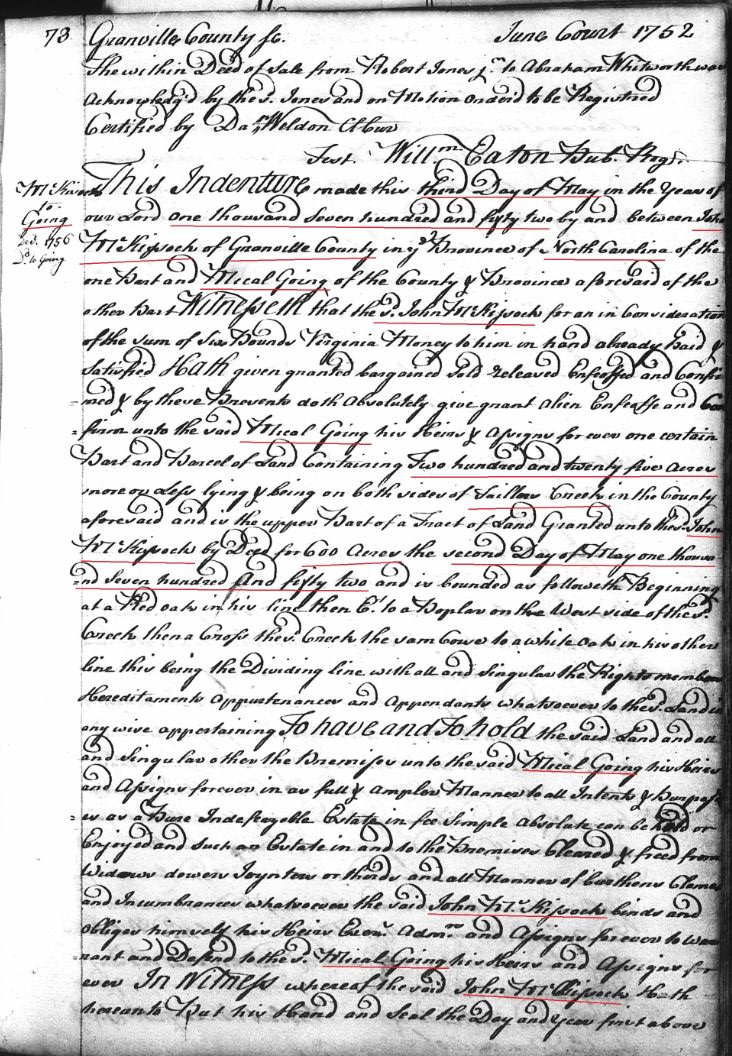 73 Granville County sc. June Court 1752
The within Deed of Sale from Robert Jones jr. to Abraham Whitworth was
acknowledg'd by the sd. Jones and on Motion Order'd to be Registred
Certified by Danl. Weldon Cl Cur
Test. Willm Eaton Pub. Regr.
This Indenture made this third Day of May in the Year of
our Lord one thousand Seven hundred and fifty two by and between John
McKissock of Granville County in ye Province of North Carolina of the
one Part and Mical Going of the County & Province aforesaid of the
other Part Witnesseth that the sd. John McKissock for an in Consideration
of the sum of Six Pounds Virginia Money to him in hand already Paid &
Satisfied Hath given granted bargained Sold Released Enfeoffed and Confir
=med & by these Presents doth absolutely give grant alien Enfeoffe and Con
=firm unto the said Mical Going his Heirs & Assigns for ever one certain
Part and Parcel of Land Containing Two hundred and twenty five Acres
more or Less lying & being on both sides of Taillow Creek in the County
aforesaid and is the upper Part of a Tract of Land Granted unto the sd. John
McKissock by Deed for 600 Acres the second Day of May one thousa
=nd Seven hundred And fifty two and is bounded as followeth Beginning
at a Red oak in his line then Et. to a Poplar on the West side of the sd.
Creek then a Cross the sd. Creek the sam Corse to a white Oak in his other
line this being the Dividing line with all and Singular the Rights members
Hereditaments appurtenances and Appendants whatsoever to the sd. Land in
any wise appertaining To have and To hold the said Land and all
and Singular other the Premises unto the said Mical Going his Heirs
and Assigns forever in as full & ample Manner to all Intents & Purpos
=es as a Pure Indefeyable Estate in fee Simple absolate can be held or
Enjoyed and such an Estate in and to the Premises Cleared & freed from
Widows dowers Joyntors or thirds and all Manner of burthens Clames
and Incumbrances whatsoever the said John McKissock binds and
obliges himself his Heirs Exers. Admrs. and Assigns forever to War
=rant and Defend to the sd. Mical Going his Heirs and Assigns for
ever In Witness whereof the said John McKissock Hath
hereunto Put his Hand and Seal the Day and Year first above
to
Going
Decr. 1756
Dd. to Going